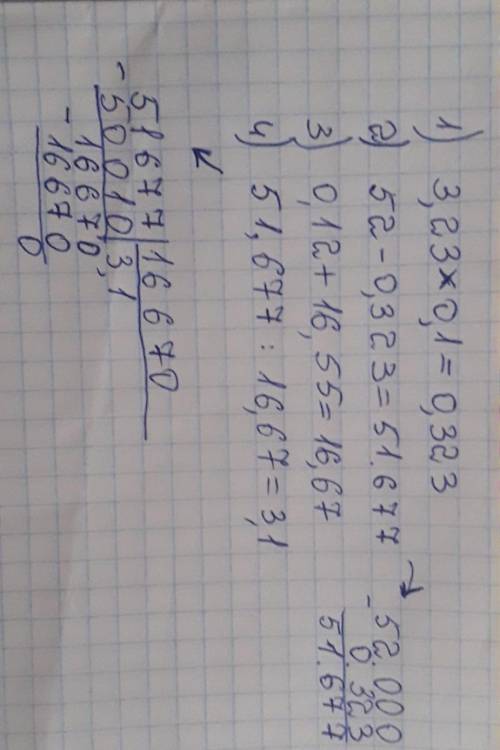 1) 3,23×0,1=0,323
2) 52-0,323=51.677
3) 0,12+16,55=16,67
4) 51,677:16,67=3,1
-52.000
0.323
51.677
-51677|16670
50010|3,1
-16670
16670
0